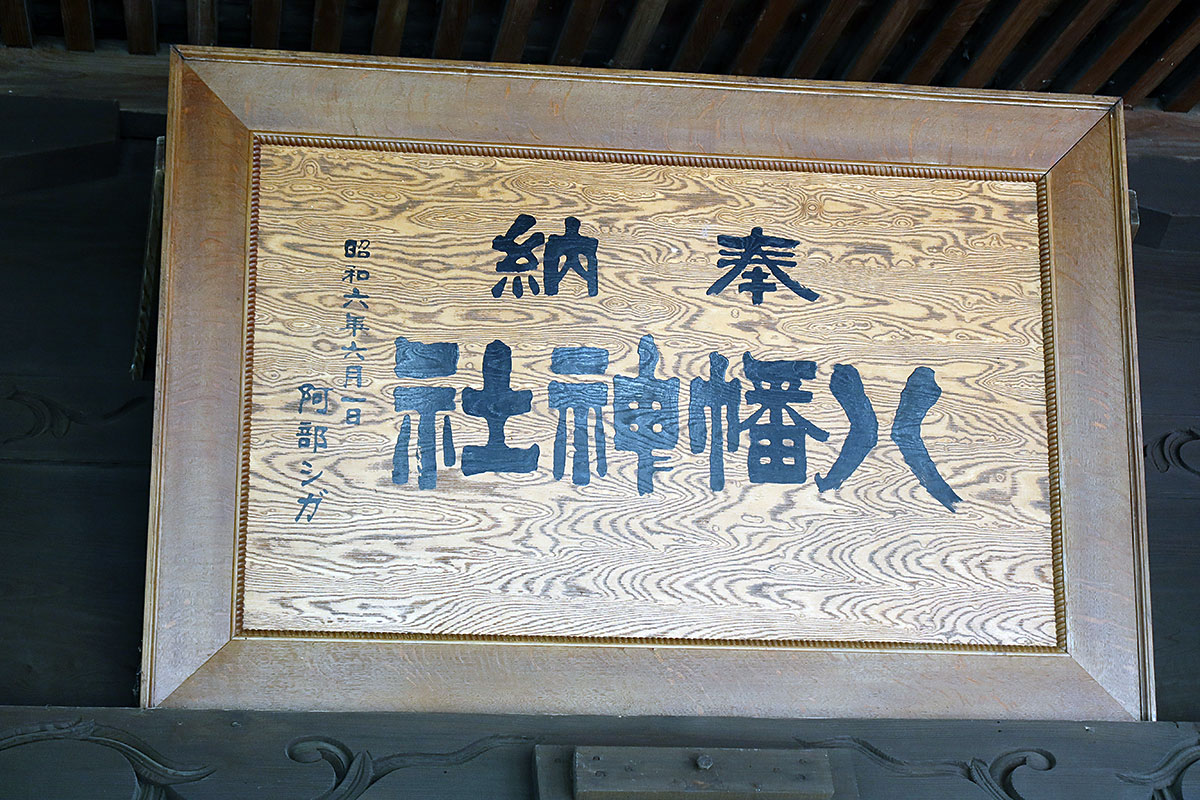 奉納
八幡神社
昭和六年六月一日
阿部シガ